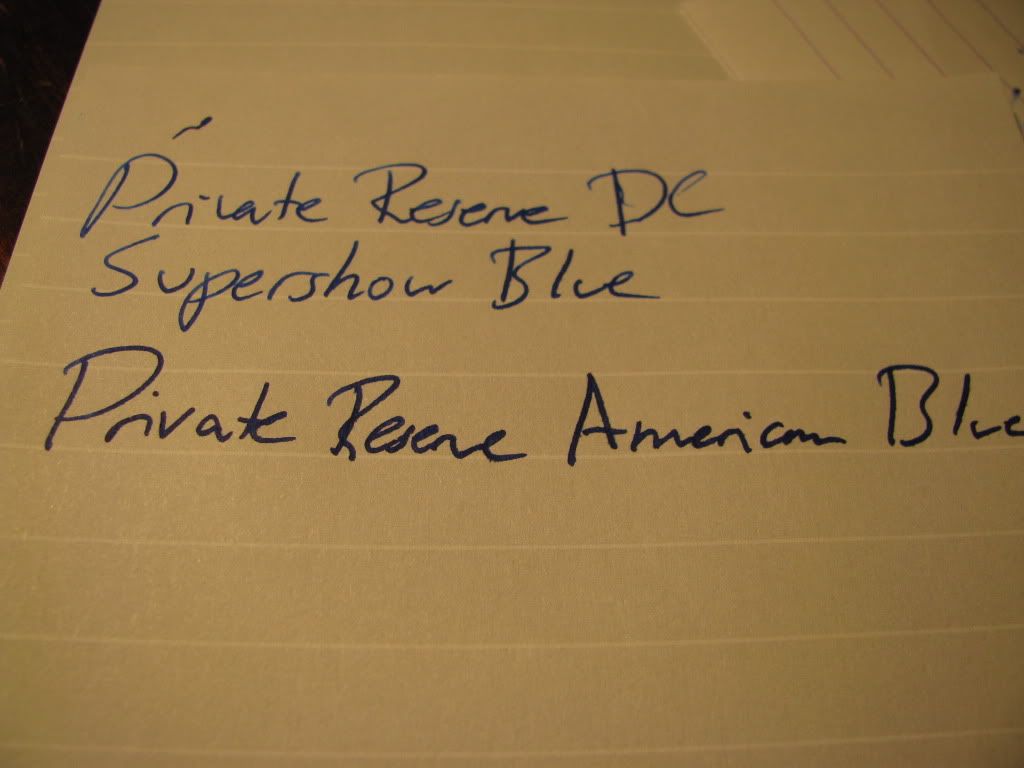 Private Reserve DC
Supershow Blue
Private Reserve American Blue